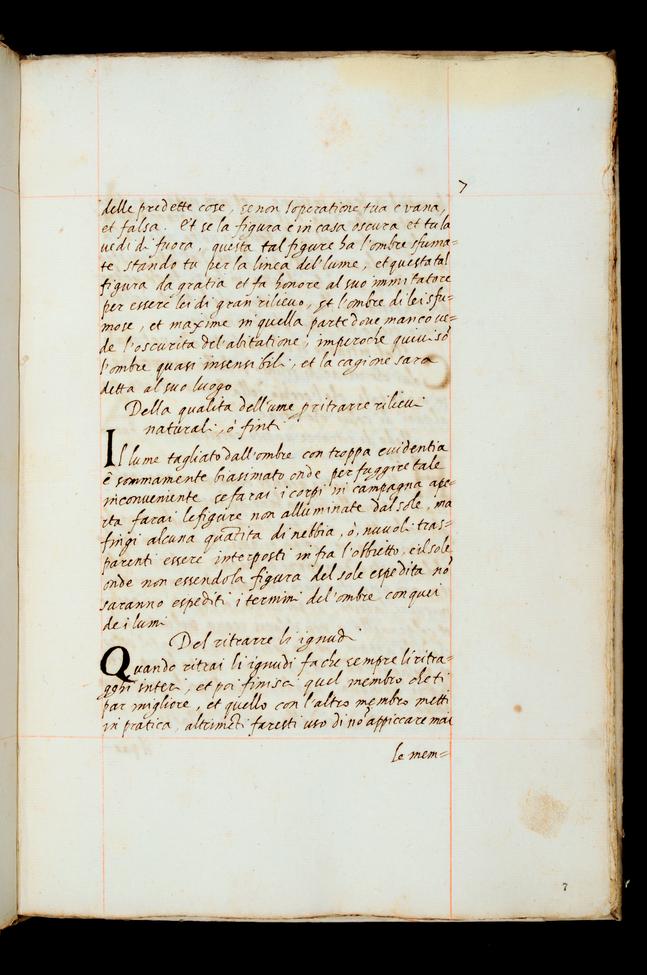 7
delle predette cose, se non l'operatione tua e vana,
et falsa. Et se la figura e in casa oscura et tu la
vedi di fuora, questa tal figure ha l'ombre sfuma=
te stando tu per la linea del lume, et questa tal
figura da gratia et fa honore al suo immitatore
per essere lei di gran rilievo, et l'ombre di lei sfu=
mose, et maxime in quella parte dove manco ve=
de l'oscurita del abitatione, imperoche quivi sō
l'ombre quasi insensibili, et la cagione sara
detta al suo luogo
Della qualita dell'ume p ritrarre rilievi
naturali, ò finti
Il lume tagliato dall'ombre con troppa evidentia
è sommamente biasimato onde per fuggire tale
inconveniente se farai i corpi in campagna ape=
rta farai le figure non alluminate dal sole, ma
fingi alcuna quātita di nebbia, ò, nuvoli tras=
parenti essere interposti infra l'obbietto, e il sole
onde non essendo la figura del sole espedita nō
saranno espediti i termini del'ombre con quei
de i lumi
Del ritrarre li ignudi
Quando ritrai li ignudi fa che sempre li ritra=
gghi interi, et poi finisci quel membro che ti
par migliore, et quello con l'altro membro metti
in pratica, altrimēti faresti uso di nō appiccare mai
le mem=
7